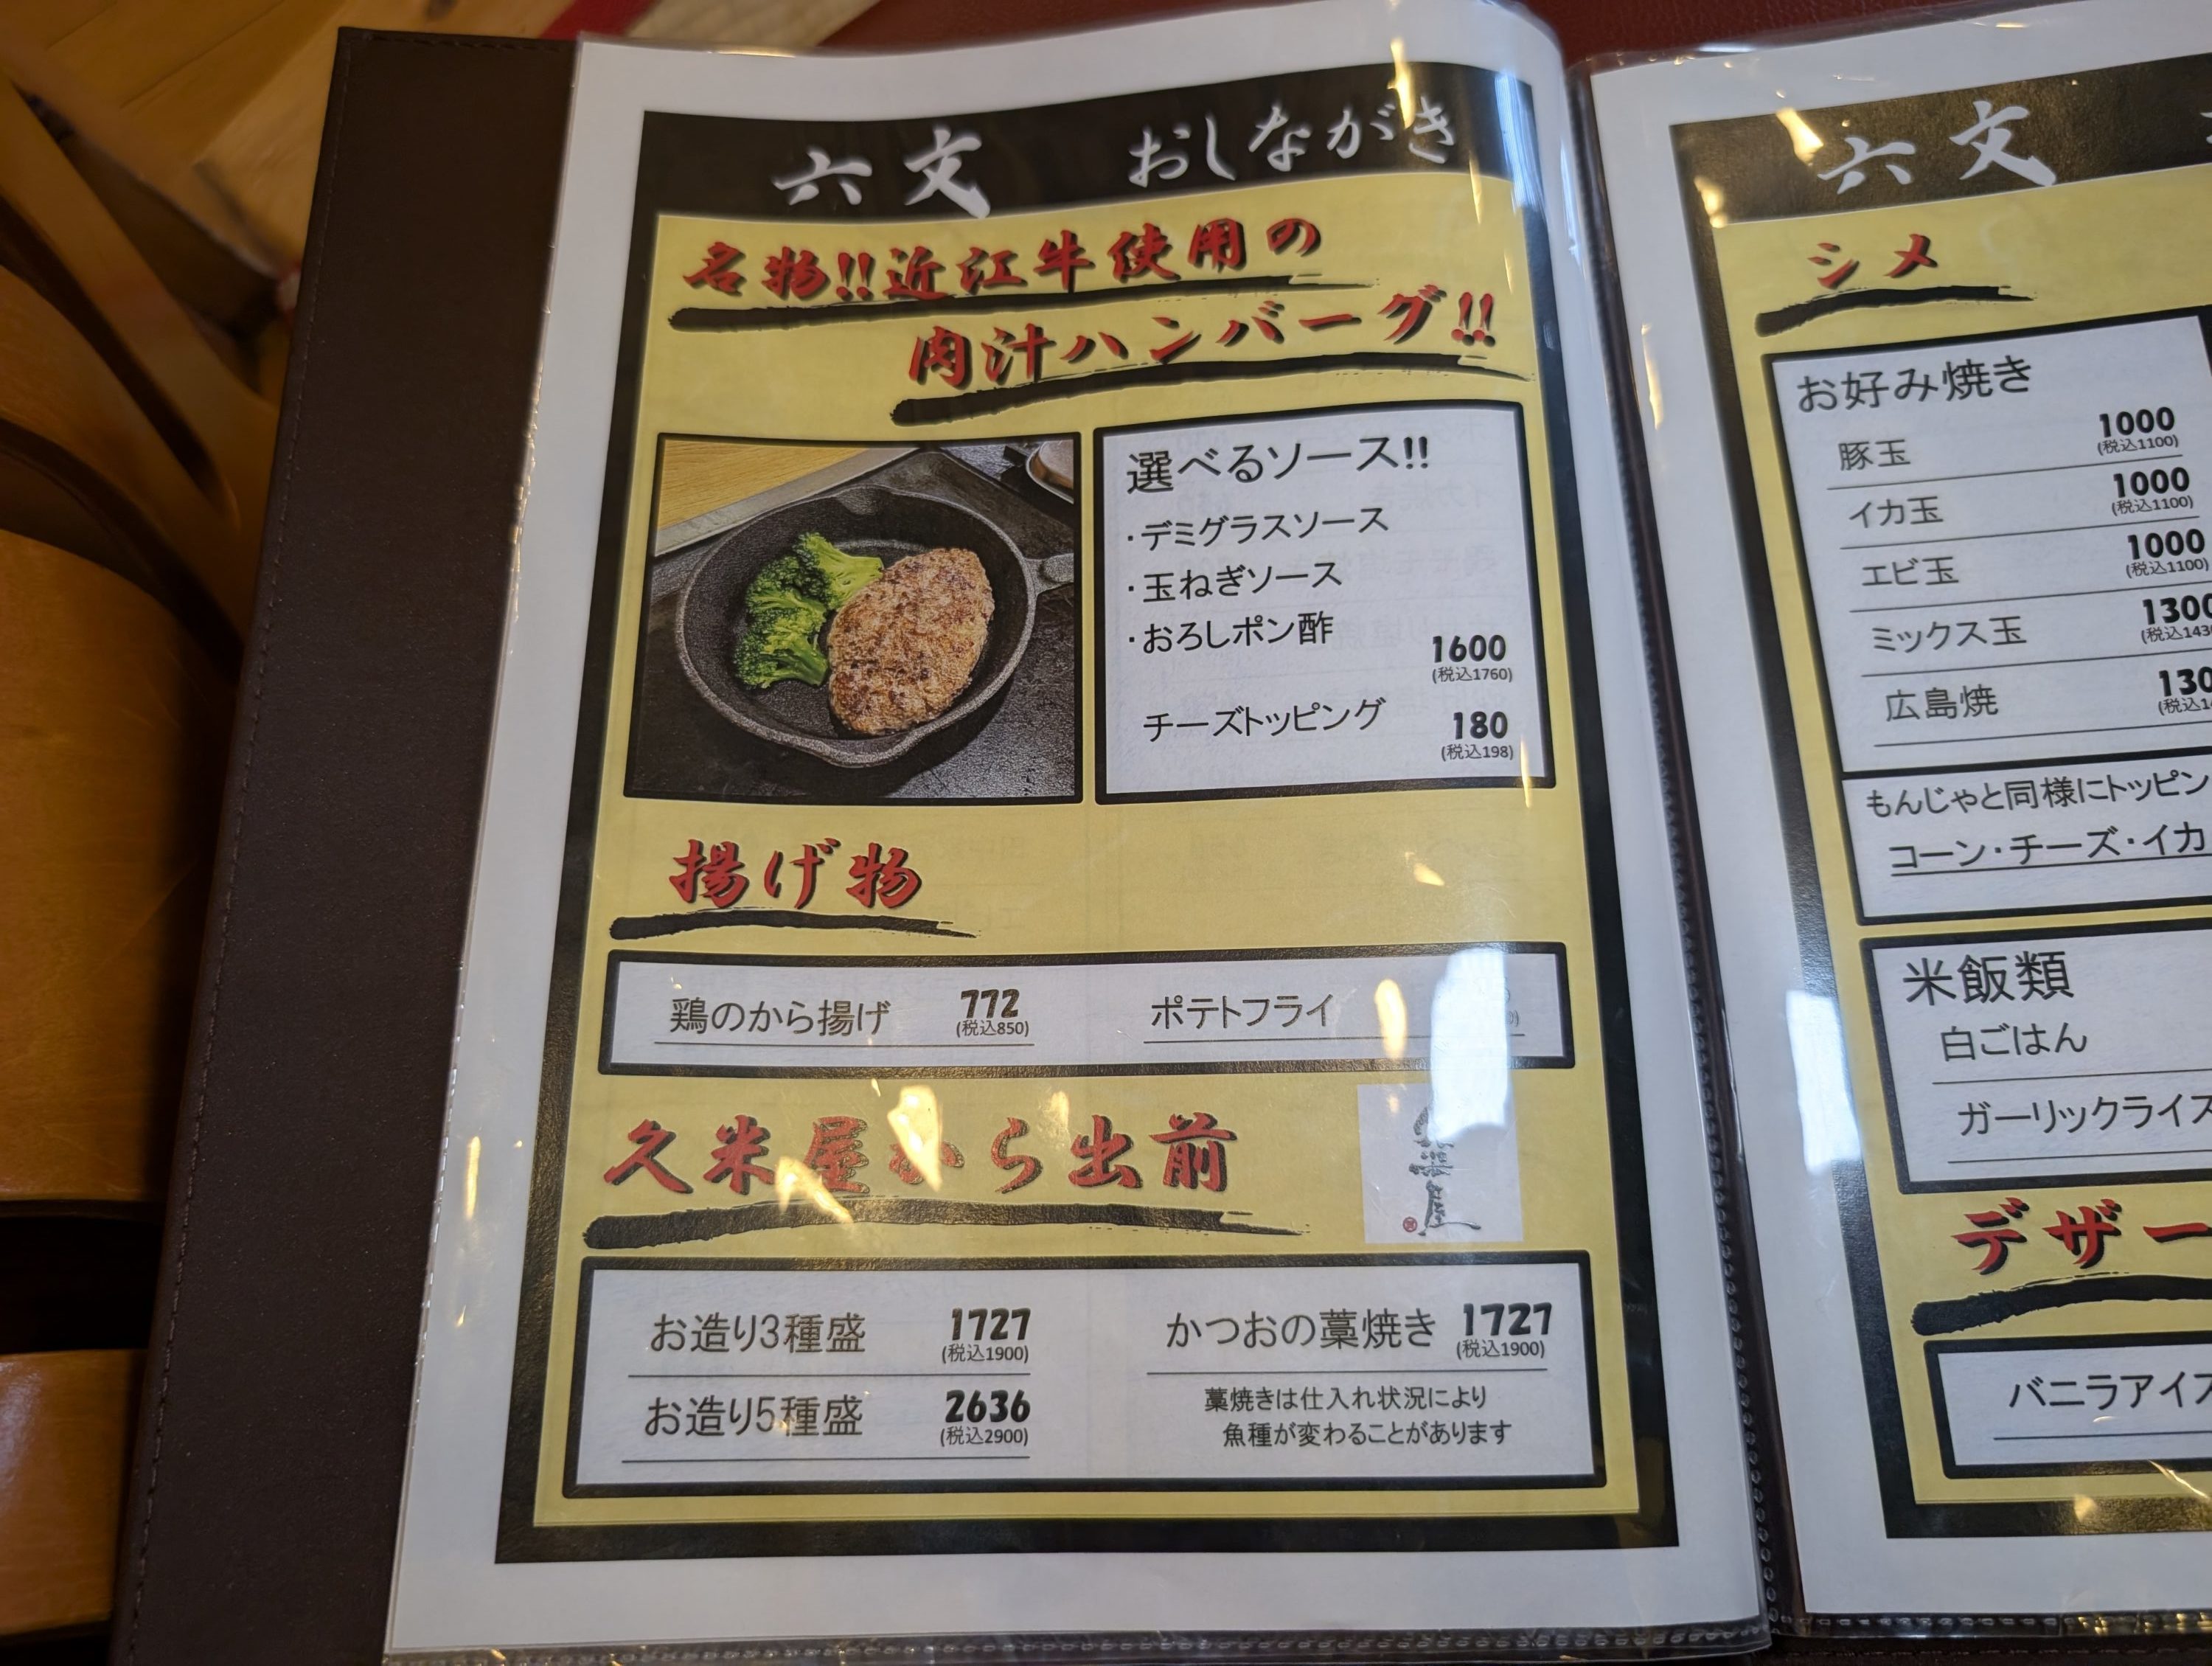 六文 おしながき
名物!!近江牛使用の
肉汁ハンバーグ!!
選べるソース!!
・デミグラスソース
・玉ねぎソース
・おろしポン酢
1600
(税込1760)
チーズトッピング 180
(税込198)
揚げ物
鶏のから揚げ 772
(税込850)
ポテトフライ
久米屋から出前
久米屋
お造り3種盛 1727
(税込1900)
かつおの藁焼き 1727
(税込1900)
お造り5種盛 2636
(税込2900)
藁焼きは仕入れ状況により
魚種が変わることがあります
六文
シメ
お好み焼き
豚玉 1000
(税込1100)
イカ玉 1000
(税込1100)
エビ玉 1000
(税込1100)
ミックス玉 1300
(税込143
広島焼 130
(税込1
もんじゃと同様にトッピン
コーン・チーズ・イカ
米飯類
白ごはん
ガーリックライス
デザー
バニラアイス